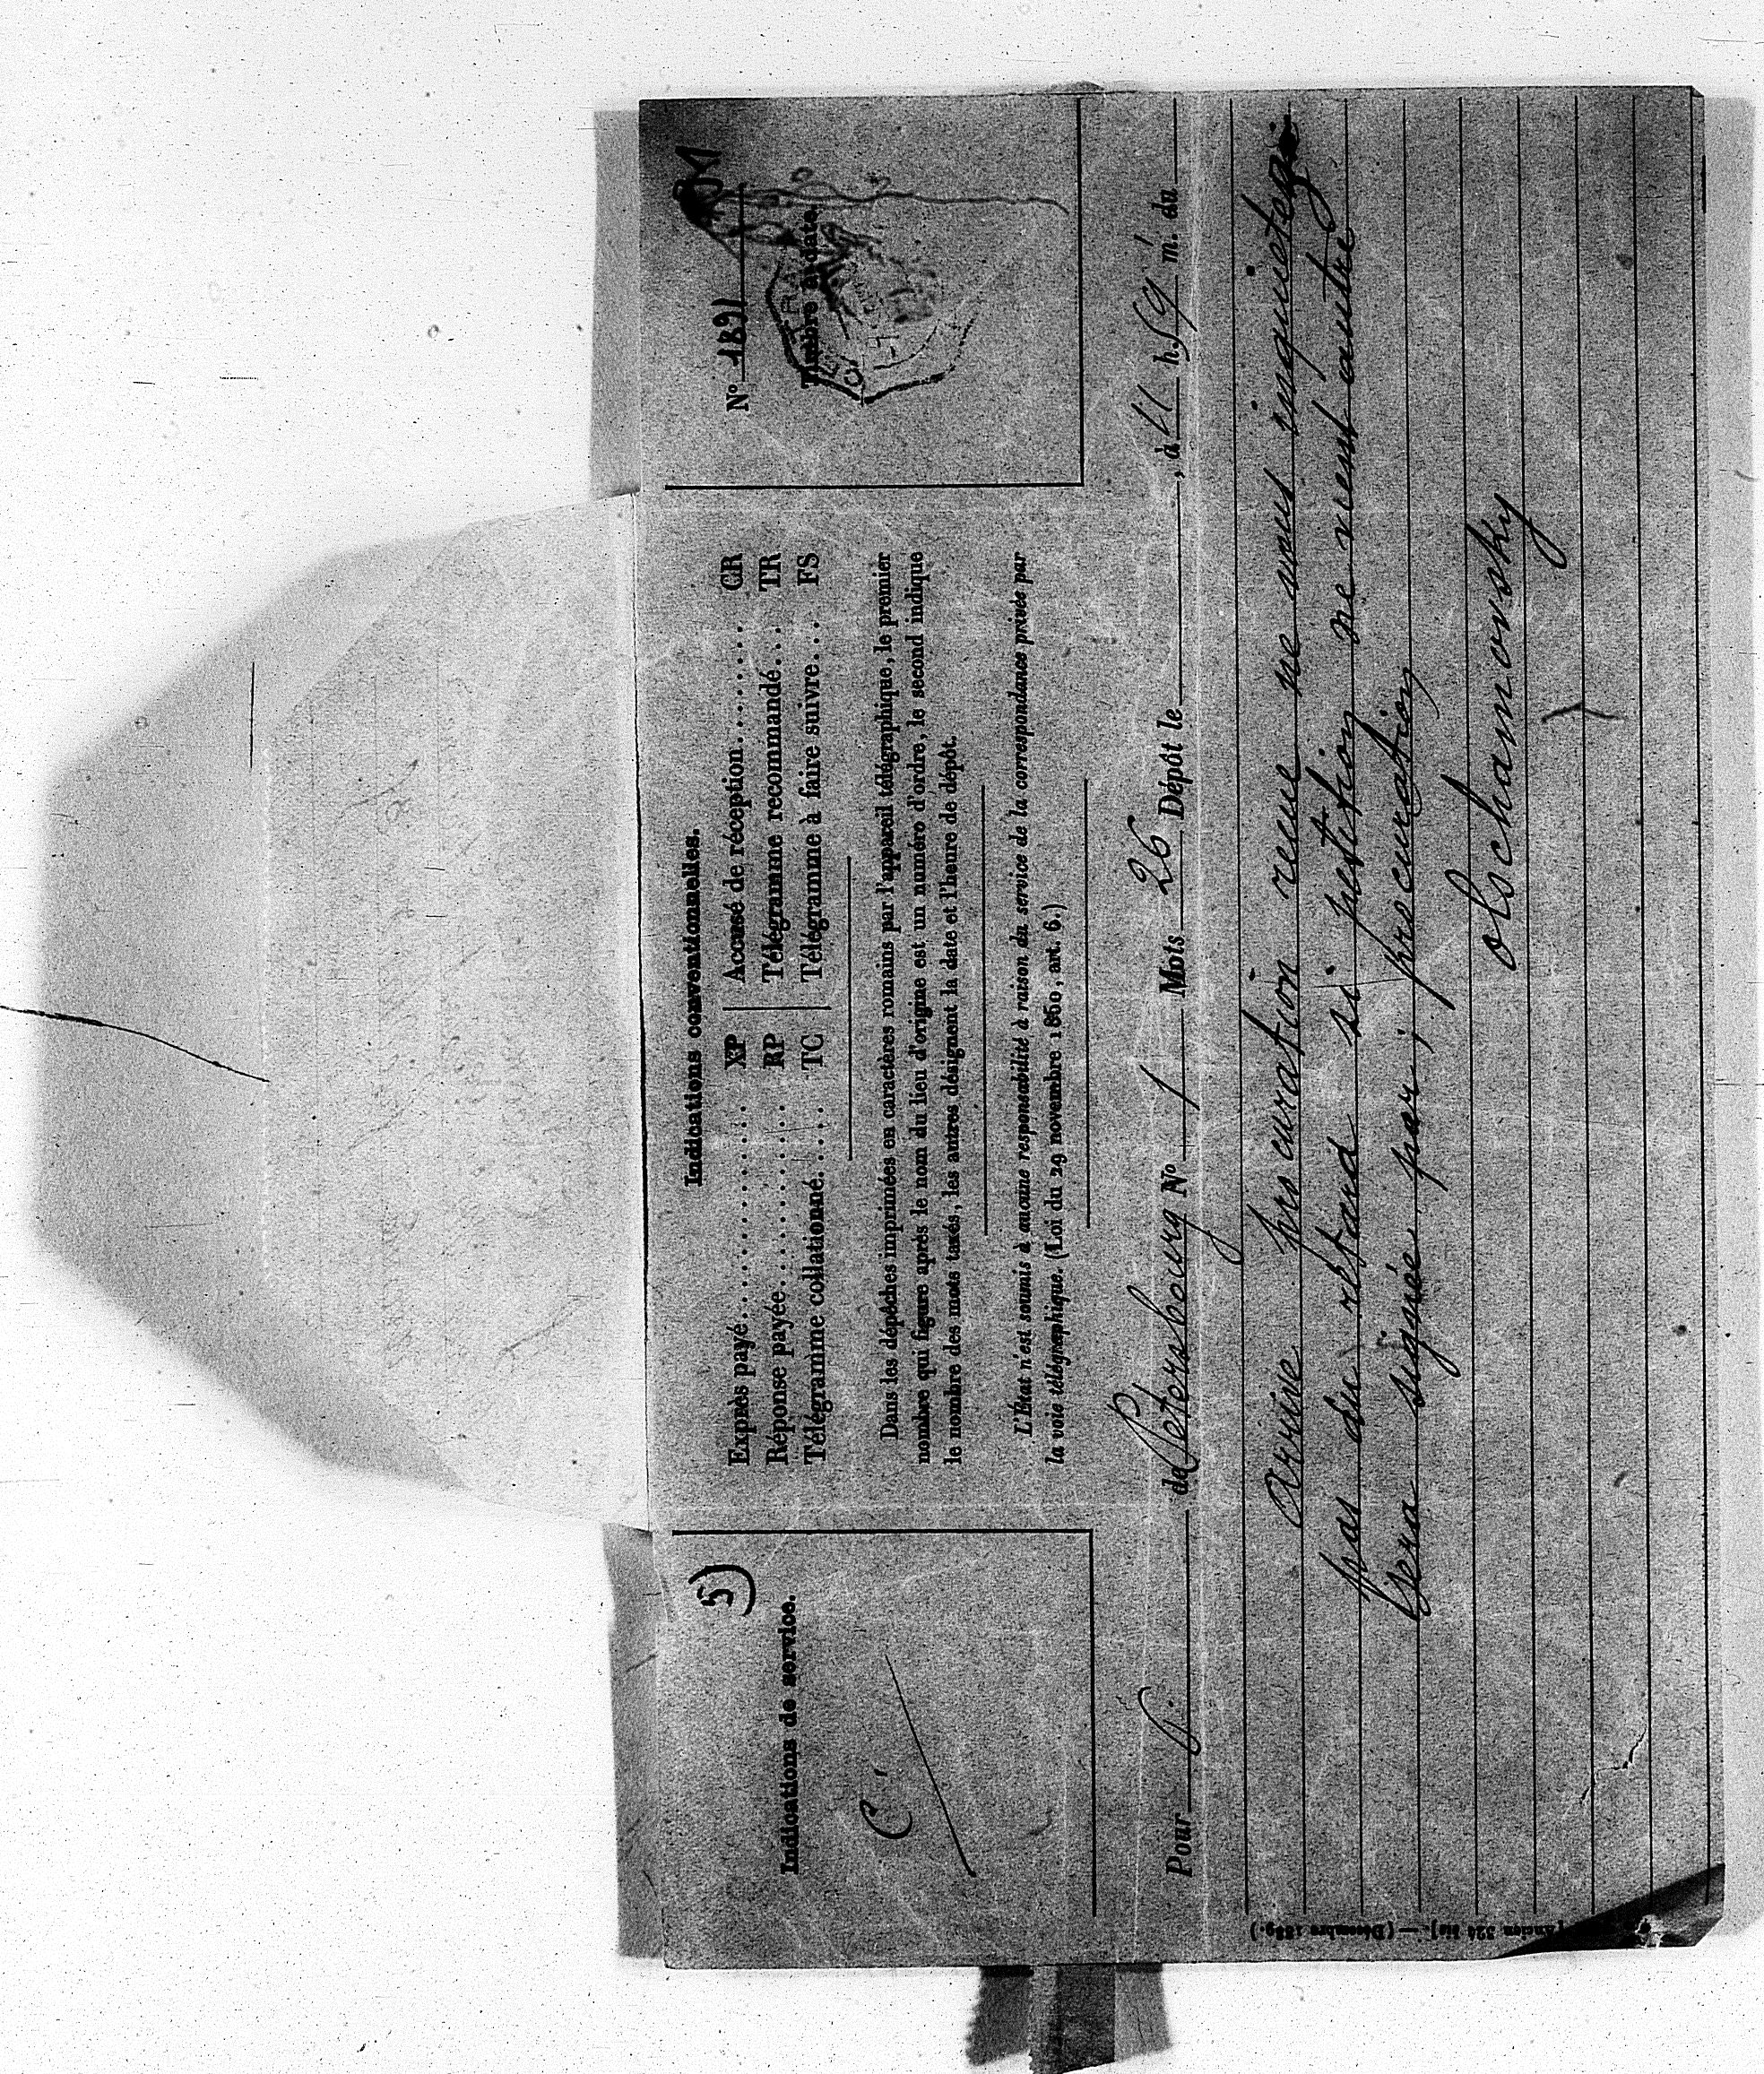 5)
Indications de service.
C
Indications conventionnelles.
Exprès payé.................... XP
Réponse payée................ RP
Télégramme collationné..... TC
Accusé de réception......... CR
Télégramme recommandé... TR
Télégramme à faire suivre... FS
Dans les dépêches imprimées en caractères romains par l'appareil télégraphique, le premier
nombre qui figure après le nom du lieu d'origine est un numéro d'ordre, le second indique
le nombre des mots taxés, les autres désignent la date et l'heure de dépôt.
L'État n'est soumis à aucune responsabilité à raison du service de la correspondance privée par
la voie télégraphique. (Loi du 29 novembre 1850, art. 6.)
N° 1891
Timbre à date.
Pour P. de Petersbourg N° 1 Mots 26 Dépôt le , à 11 h. 59 m. du
arrive procuration recue ne vous inquietez
pas du retard si petition ne vient autre
sera signée par procuration
olschamovsky
[Ancien 324 bis]. — (Décembre 1889.)